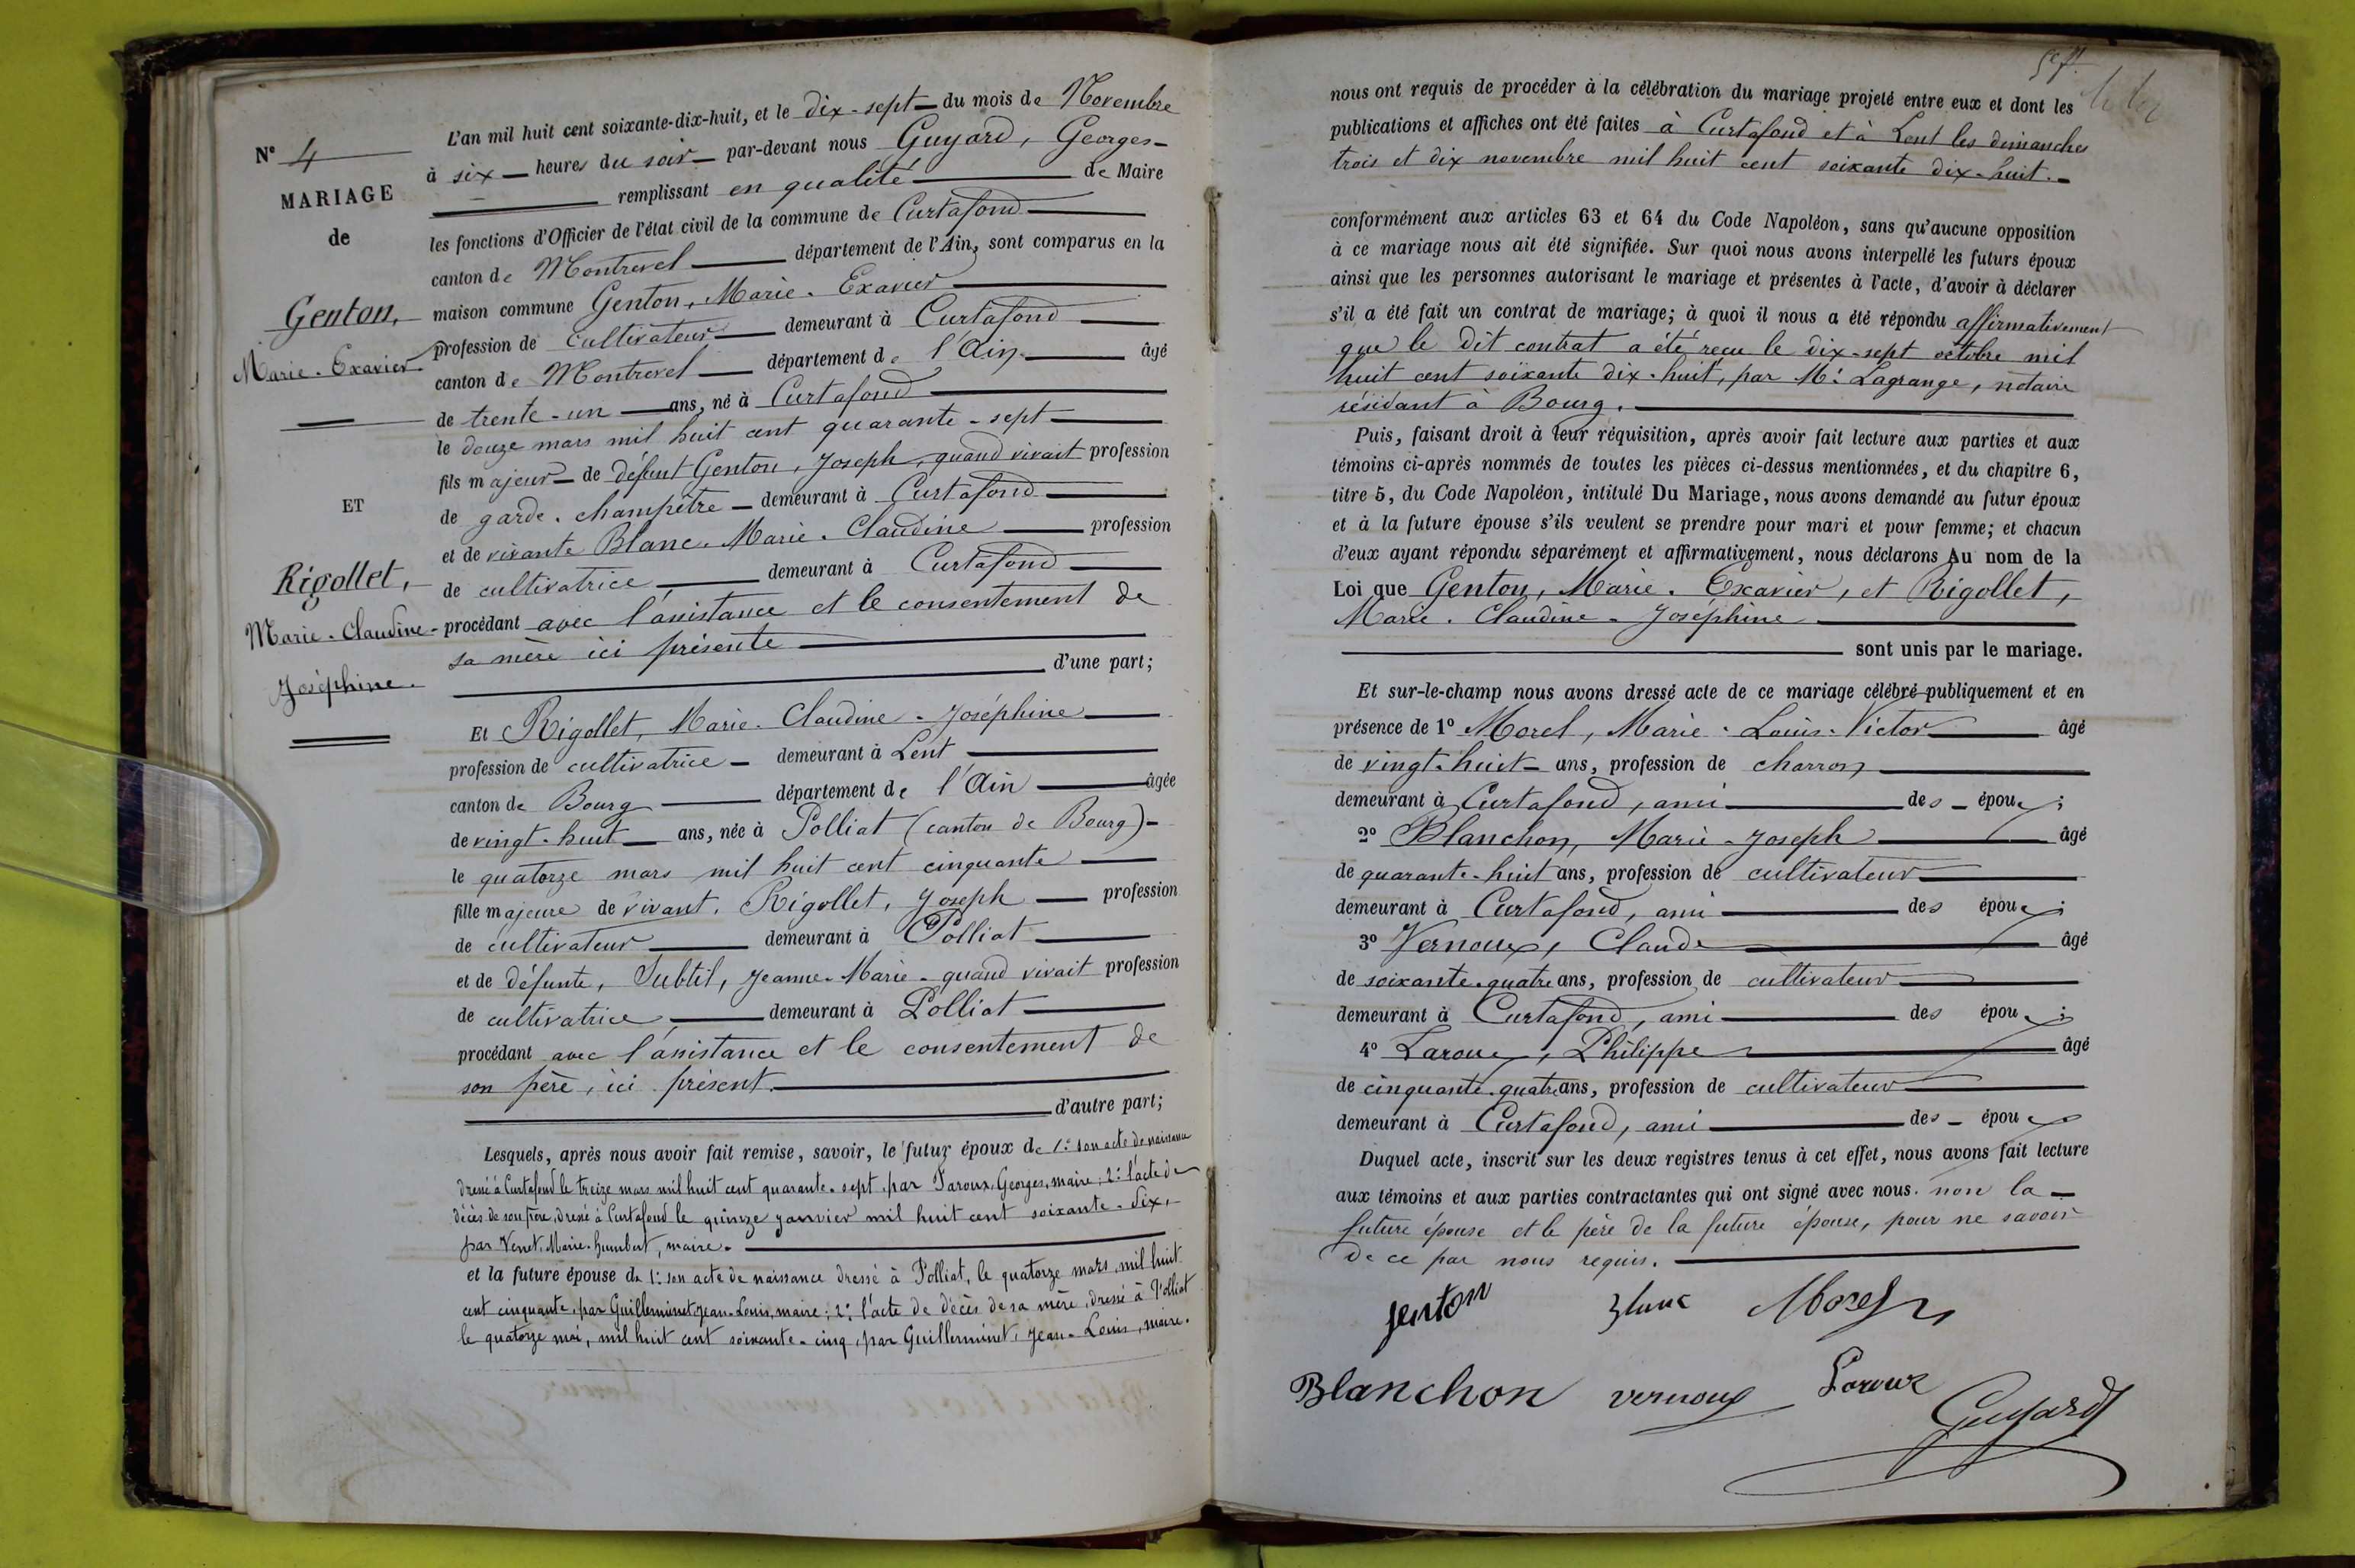 N° 4
MARIAGE
de
Genton,
Marie-Exavier
ET
Rigollet,
Marie-Claudine-
Joséphine.
L'an mil huit cent soixante-dix-huit, et le dix-sept du mois de Novembre
à six heures du soir par-devant nous Guyard, Georges-
remplissant en qualité de Maire
les fonctions d'Officier de l'état civil de la commune de Curtafond
canton de Montrevel département de l'Ain, sont comparus en la
maison commune Genton, Marie-Exavier
profession de cultivateur demeurant à Curtafond
canton de Montrevel département de l'Ain âgé
de trente-un ans, né à Curtafond
le douze mars mil huit cent quarante-sept
fils majeur de défunt Genton, Joseph, quand vivait profession
de garde-champêtre demeurant à Curtafond
et de vivante Blanc, Marie-Claudine profession
de cultivatrice demeurant à Curtafond
procédant avec l'assistance et le consentement de
sa mère ici présente
d'une part;
Et Rigollet, Marie-Claudine-Joséphine
profession de cultivatrice demeurant à Lent
canton de Bourg département de l'Ain âgée
de vingt-huit ans, née à Polliat (canton de Bourg)-
le quatorze mars mil huit cent cinquante
fille majeure de vivant, Rigollet, Joseph profession
de cultivateur demeurant à Polliat
et de défunte, Subtil, Jeanne-Marie-quand vivait profession
de cultivatrice demeurant à Polliat
procédant avec l'assistance et le consentement de
son père, ici présent.
d'autre part;
Lesquels, après nous avoir fait remise, savoir, le futur époux de 1° son acte de naissance
dressé à Curtafond le treize mars mil huit cent quarante-sept, par Laroux, Georges, maire; 2° l'acte de
décès de son père, dressé à Curtafond le quinze janvier mil huit cent soixante-dix,
par Venet, Marie-humbert, maire.
et la future épouse de 1° son acte de naissance dressé à Polliat, le quatorze mars, mil huit
cent cinquante, par Guillerminet, Jean-Louis, maire; 2° l'acte de décès de sa mère, dressé à Polliat
le quatorze mai, mil huit cent soixante-cinq, par Guillerminet, Jean-Louis, maire.
sept.
nous ont requis de procéder à la célébration du mariage projeté entre eux et dont les
publications et affiches ont été faites à Curtafond et à Lent les dimanches
trois et dix novembre mil huit cent soixante dix-huit.-
conformément aux articles 63 et 64 du Code Napoléon, sans qu'aucune opposition
à ce mariage nous ait été signifiée. Sur quoi nous avons interpellé les futurs époux
ainsi que les personnes autorisant le mariage et présentes à l'acte, d'avoir à déclarer
s'il a été fait un contrat de mariage; à quoi il nous a été répondu affirmativement
que le dit contrat a été reçu le dix-sept octobre mil
huit cent soixante dix-huit, par M° Lagrange, notaire
résidant à Bourg.
Puis, faisant droit à leur réquisition, après avoir fait lecture aux parties et aux
témoins ci-après nommés de toutes les pièces ci-dessus mentionnées, et du chapitre 6,
titre 5, du Code Napoléon, intitulé Du Mariage, nous avons demandé au futur époux
et à la future épouse s'ils veulent se prendre pour mari et pour femme; et chacun
d'eux ayant répondu séparément et affirmativement, nous déclarons Au nom de la
Loi que Genton, Marie-Exavier, et Rigollet,
Marie-Claudine-Joséphine
sont unis par le mariage.
Et sur-le-champ nous avons dressé acte de ce mariage célébré publiquement et en
présence de 1° Morel, Marie-Louis-Victor âgé
de vingt-huit ans, profession de charron
demeurant à Curtafond, ami des époux;
2° Blanchon, Marie-Joseph âgé
de quarante-huit ans, profession de cultivateur
demeurant à Curtafond, ami des époux;
3° Vernoux, Claude âgé
de soixante-quatre ans, profession de cultivateur
demeurant à Curtafond, ami des époux;
4° Laroux, Philippe âgé
de cinquante-quatre ans, profession de cultivateur
demeurant à Curtafond, ami des époux
Duquel acte, inscrit sur les deux registres tenus à cet effet, nous avons fait lecture
aux témoins et aux parties contractantes qui ont signé avec nous. non la
future épouse et le père de la future épouse, pour ne savoir
de ce par nous requis.
genton Blanc Morel
Blanchon vernoux Laroux
Guyard